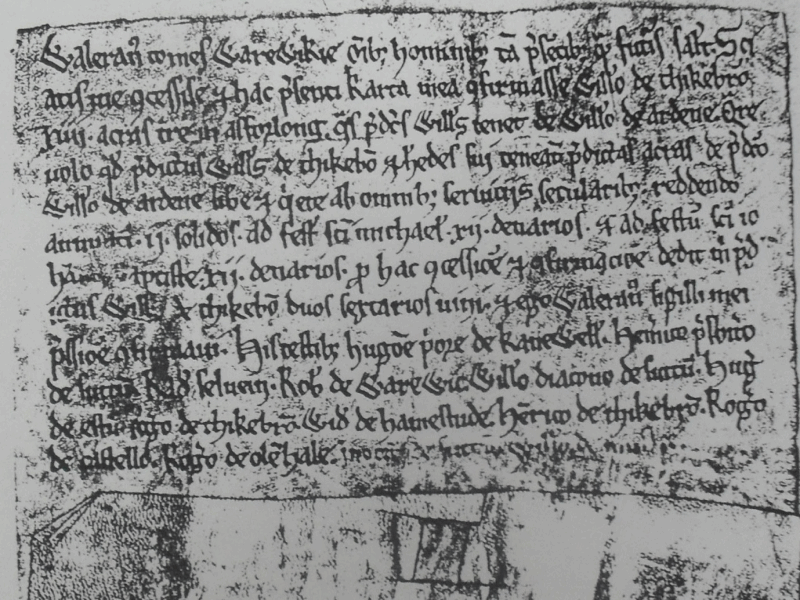 Waleran̄ comes Warewikie oīnib; hominib; tā p̄sētib; qͣ futīs salt̄. Sci
atis me ꝯcessisse ⁊ hac p̄senti karta mea ꝯfirmasse Willo de thikebrō
xiiii. acras tre in astforlong. q̄s p̄dc̄s Will's tenet de Willo de ardene. Qͣre
uolo qd̄ p̄dictus Will's de thikebrō ⁊ h̄edes sui teneāt p̄dictas acras. de p̄dc̄o
Willo de ardene lib̄e ⁊ q̇ete ab omnib; seruicijs secularib;. reddendo
annuati. ii. solidos. ad fest̄ sc̄i michael'. xii. denarios. ⁊ ad festū sc̄i io
hannis baptiste. xii. denarios. p̄ hac ꝯcessiōe ⁊ ꝯfirmaciōe. dedit m̄ p̄d
ictus Will's de thikebrō duos sextarios uini. ⁊ ego Waleran̄ sigilli mei
īp̄ssiōe ꝯfirmaui. His testib; hugōe p̄ore de kaneWell'. Henrico p̄sbit̄o
de suttū. Rad̄ seluein. Rob̄ de WareWic Willo diacono de suttū. Hug̃
de Rog̃o de thikebrō. Wid̄ de hanestude. Hēnrico de thikebrō. Rog̃o
de castello. Rog̃o de olēhale.